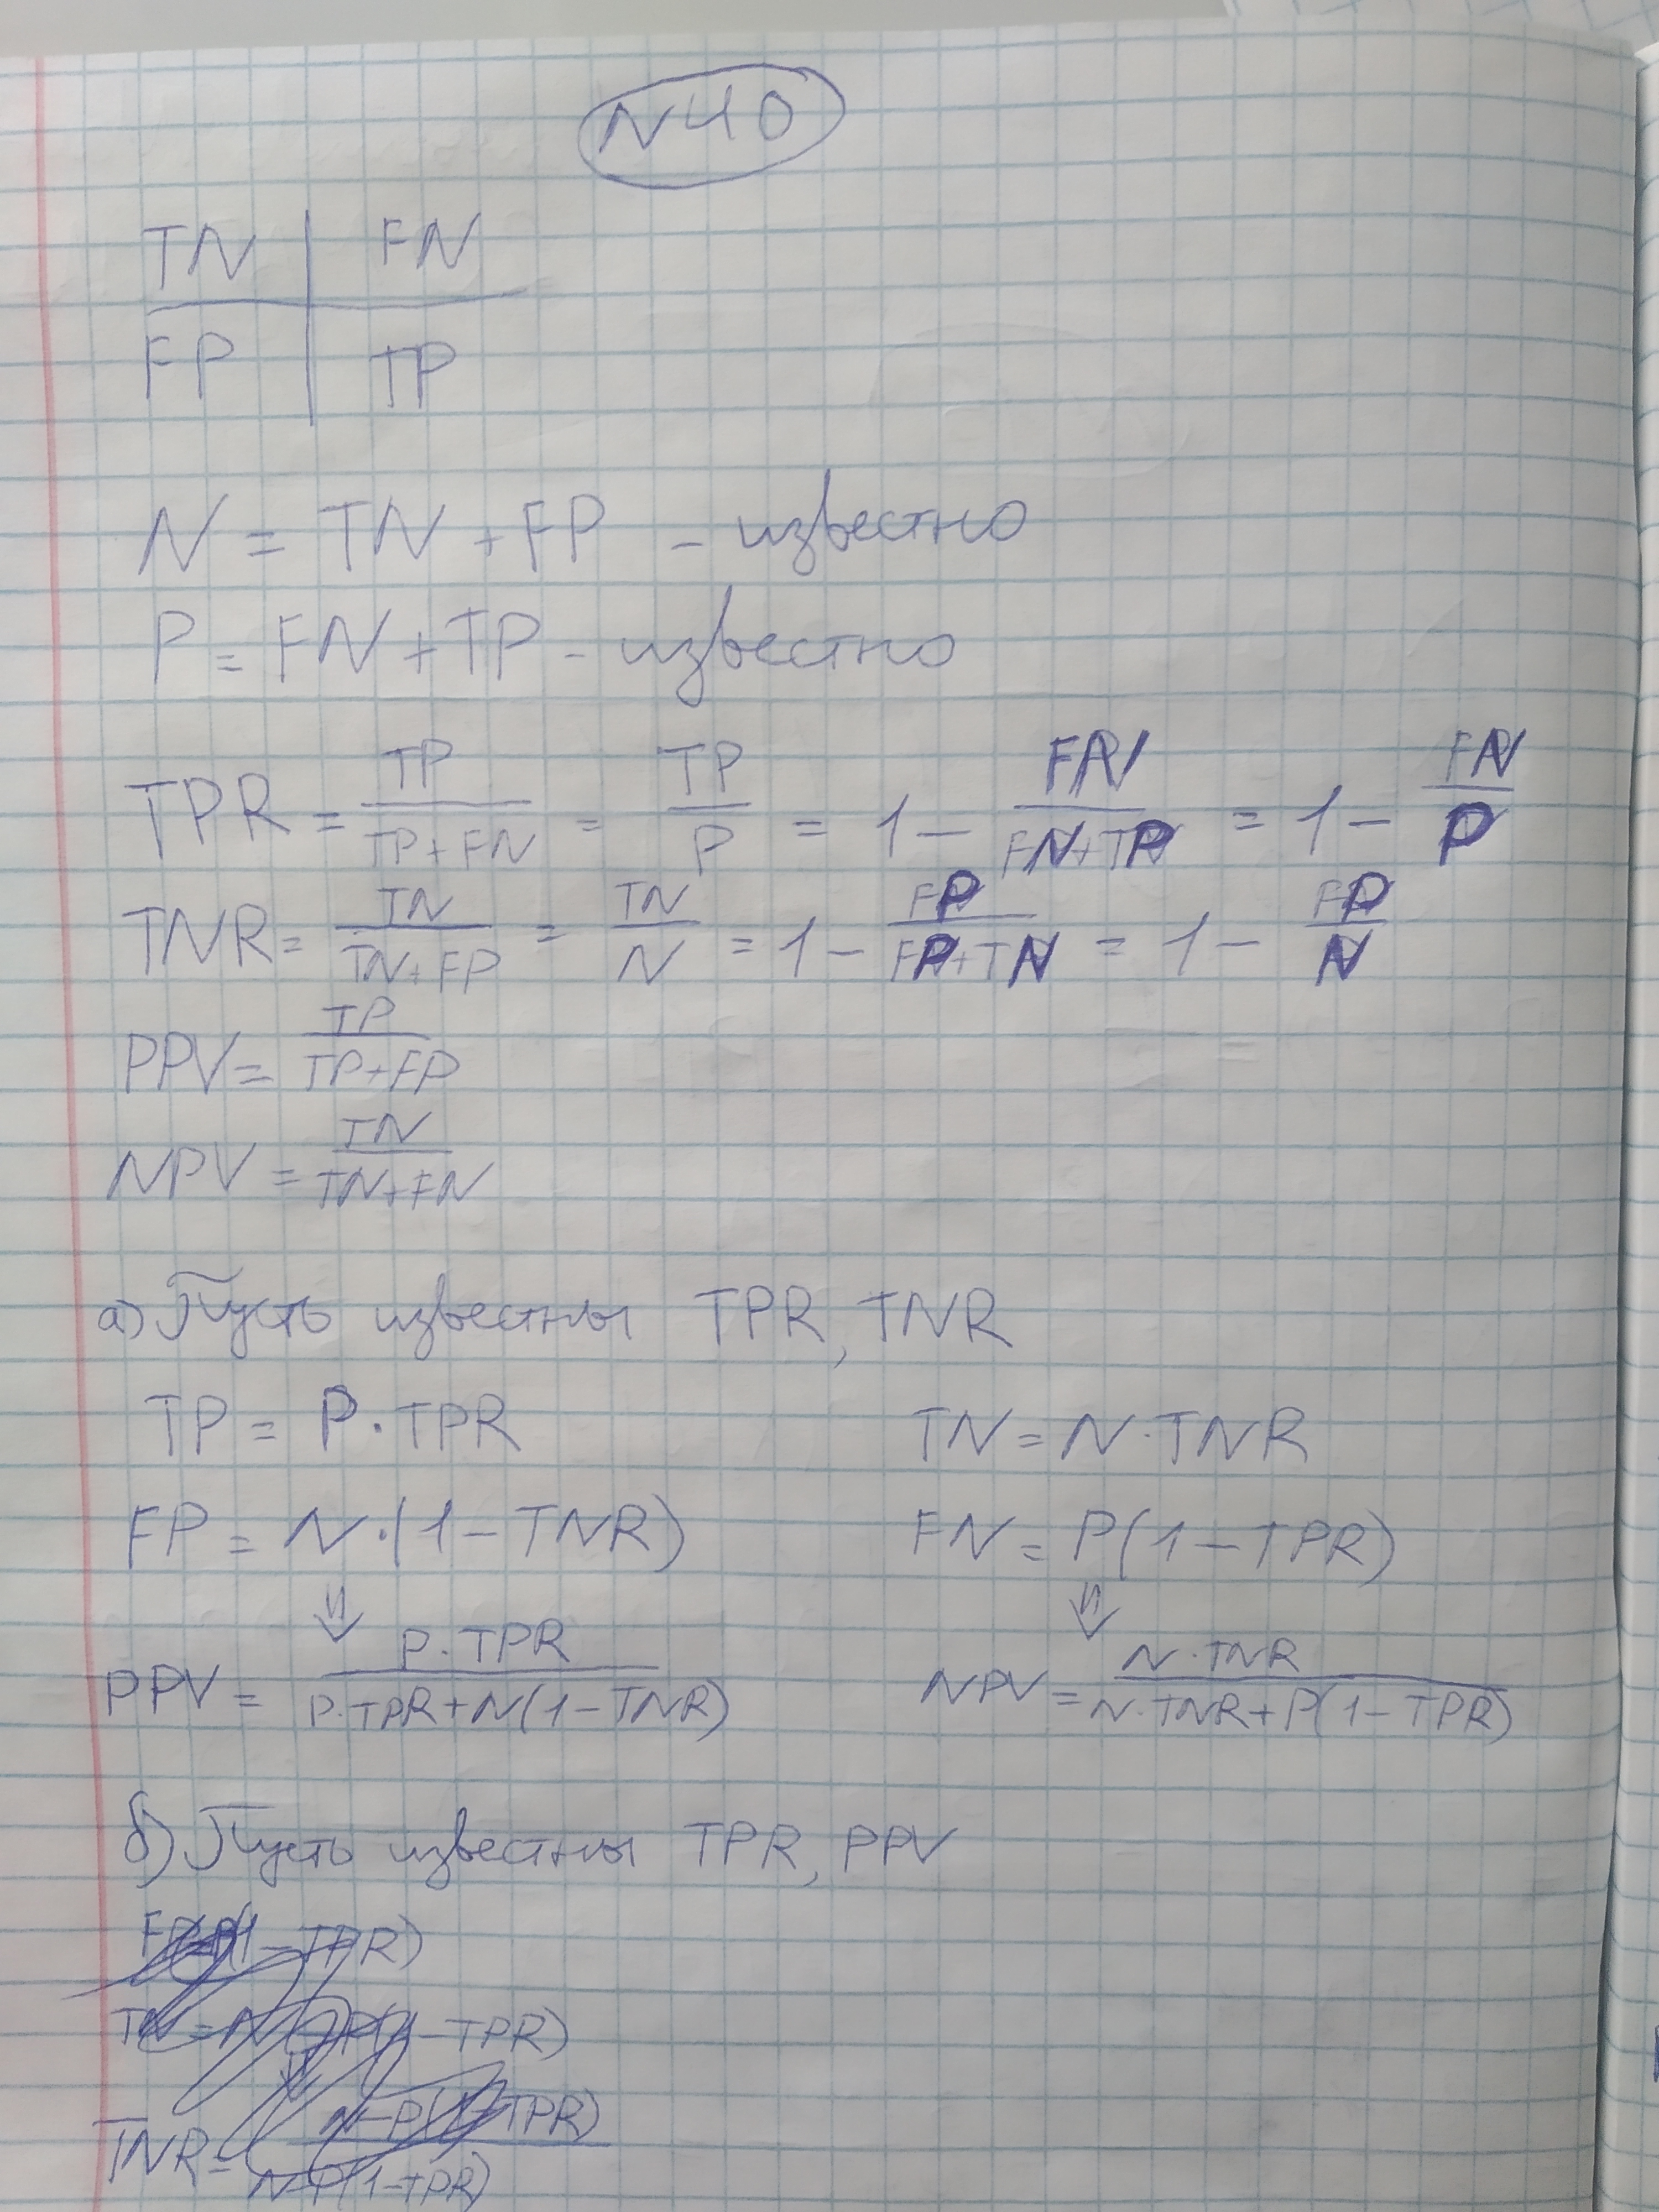 N40
TN | FN
FP | TP
N = TN + FP - известно
P = FN + TP - известно
TPR = TP/(TP+FN) = TP/P = 1 - FN/(FN+TP) = 1 - FN/P
TNR = TN/(TN+FP) = TN/N = 1 - FP/(FP+TN) = 1 - FP/N
PPV = TP/(TP+FP)
NPV = TN/(TN+FN)
а) Пусть известны TPR, TNR
TP = P · TPR TN = N · TNR
FP = N · (1 - TNR) FN = P(1 - TPR)
⇓ ⇓
PPV = P · TPR/(P · TPR + N(1 - TNR)) NPV = N · TNR/(N · TNR + P(1 - TPR))
б) Пусть известны TPR, PPV